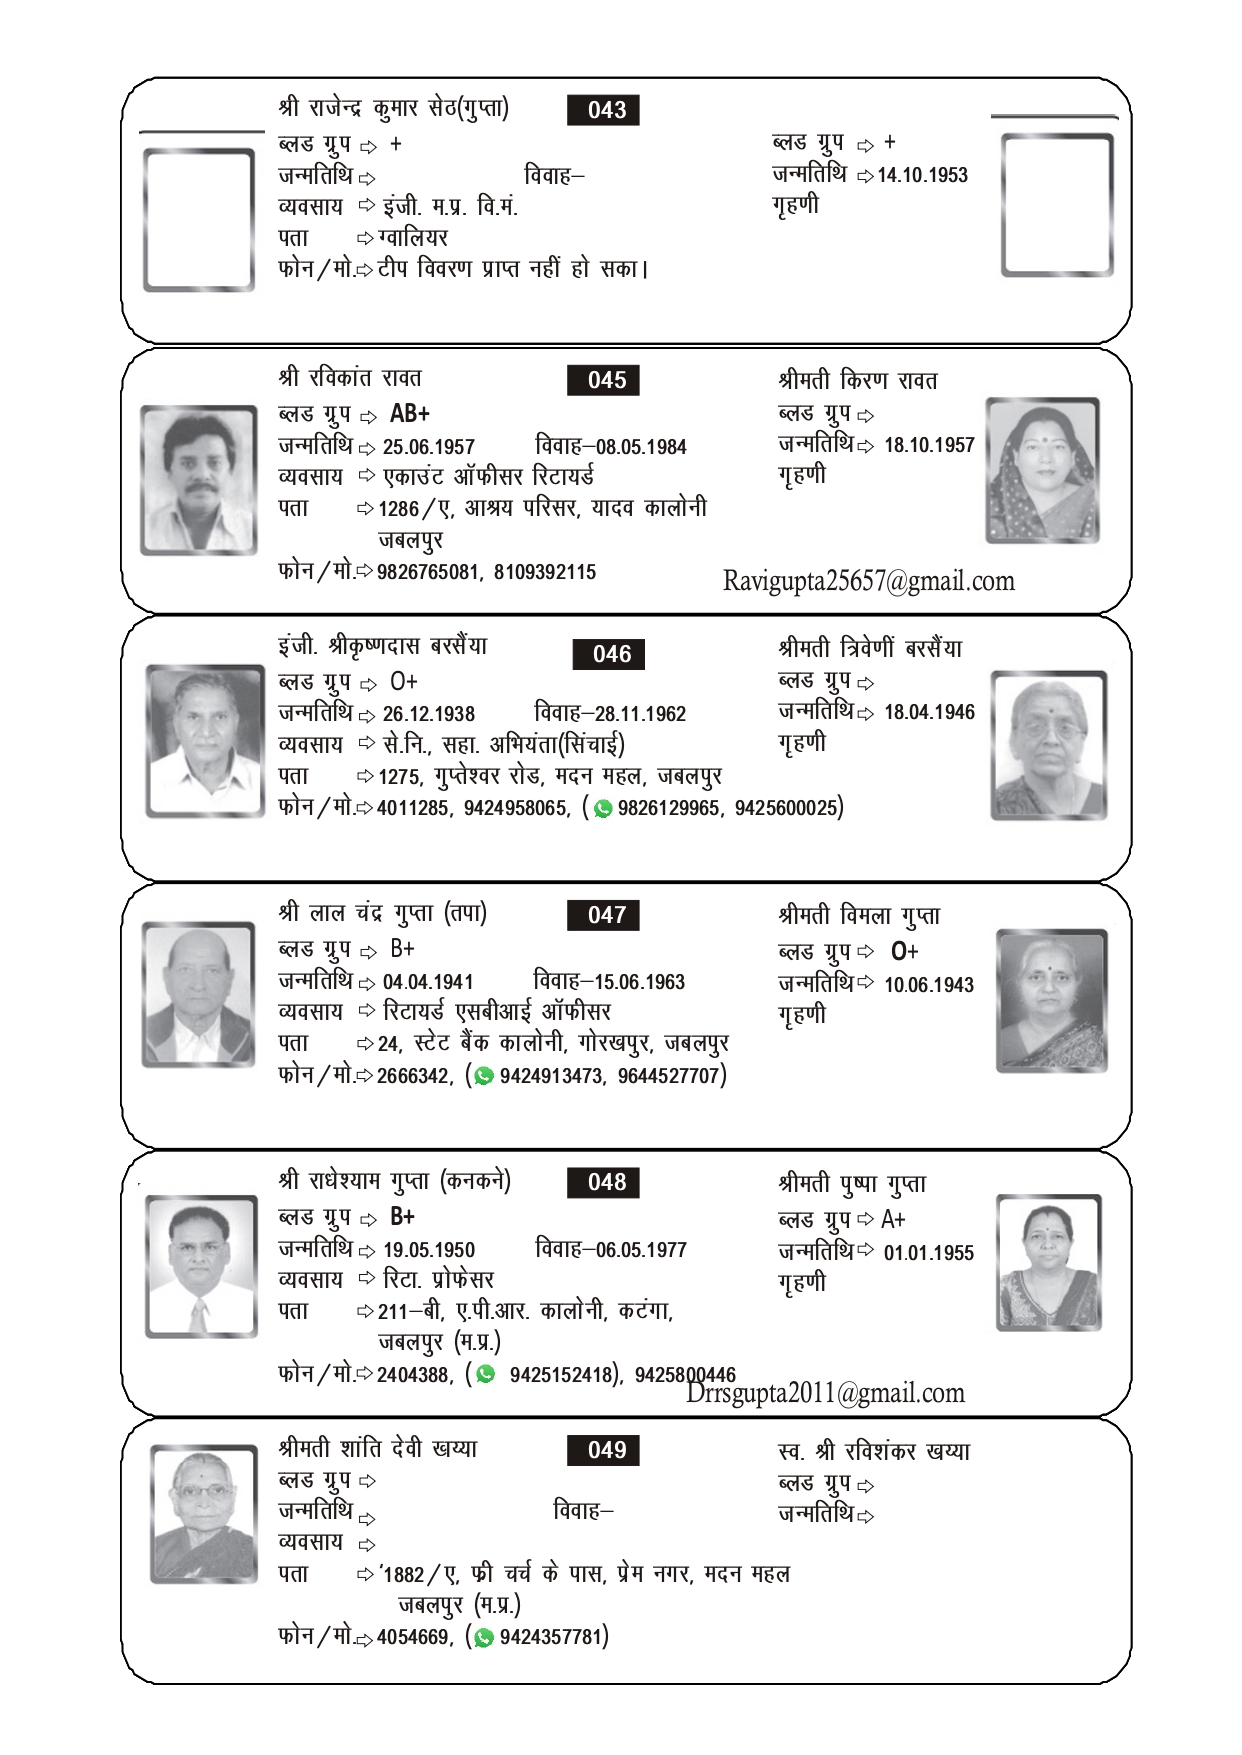 श्री राजेन्द्र कुमार सेठ(गुप्ता) 043
ब्लड ग्रुप ⇨ + ब्लड ग्रुप ⇨ +
जन्मतिथि ⇨ विवाह– जन्मतिथि ⇨14.10.1953
व्यवसाय ⇨ इंजी. म.प्र. वि.मं. गृहणी
पता ⇨ग्वालियर
फोन/मो.⇨ टीप विवरण प्राप्त नहीं हो सका।
श्री रविकांत रावत 045 श्रीमती किरण रावत
ब्लड ग्रुप ⇨ AB+ ब्लड ग्रुप ⇨
जन्मतिथि ⇨ 25.06.1957 विवाह–08.05.1984 जन्मतिथि⇨ 18.10.1957
व्यवसाय ⇨ एकाउंट ऑफीसर रिटायर्ड गृहणी
पता ⇨1286/ए, आश्रय परिसर, यादव कालोनी
जबलपुर
फोन/मो.⇨9826765081, 8109392115 Ravigupta25657@gmail.com
इंजी. श्रीकृष्णदास बरसैंया 046 श्रीमती त्रिवेणीं बरसैंया
ब्लड ग्रुप ⇨ O+ ब्लड ग्रुप ⇨
जन्मतिथि ⇨ 26.12.1938 विवाह–28.11.1962 जन्मतिथि⇨ 18.04.1946
व्यवसाय ⇨ से.नि., सहा. अभियंता(सिंचाई) गृहणी
पता ⇨1275, गुप्तेश्वर रोड, मदन महल, जबलपुर
फोन/मो.⇨4011285, 9424958065, ( 9826129965, 9425600025)
श्री लाल चंद्र गुप्ता (तपा) 047 श्रीमती विमला गुप्ता
ब्लड ग्रुप ⇨ B+ ब्लड ग्रुप ⇨ O+
जन्मतिथि ⇨ 04.04.1941 विवाह–15.06.1963 जन्मतिथि⇨ 10.06.1943
व्यवसाय ⇨ रिटायर्ड एसबीआई ऑफीसर गृहणी
पता ⇨24, स्टेट बैंक कालोनी, गोरखपुर, जबलपुर
फोन/मो.⇨2666342, ( 9424913473, 9644527707)
श्री राधेश्याम गुप्ता (कनकने) 048 श्रीमती पुष्पा गुप्ता
ब्लड ग्रुप ⇨ B+ ब्लड ग्रुप ⇨ A+
जन्मतिथि ⇨ 19.05.1950 विवाह–06.05.1977 जन्मतिथि⇨ 01.01.1955
व्यवसाय ⇨ रिटा. प्रोफेसर गृहणी
पता ⇨211–बी, ए.पी.आर. कालोनी, कटंगा,
जबलपुर (म.प्र.)
फोन/मो.⇨2404388, ( 9425152418), 9425800446
Drrsgupta2011@gmail.com
श्रीमती शांति देवी खय्या 049 स्व. श्री रविशंकर खय्या
ब्लड ग्रुप ⇨ ब्लड ग्रुप ⇨
जन्मतिथि ⇨ विवाह– जन्मतिथि⇨
व्यवसाय ⇨
पता ⇨ '1882/ए, फ्री चर्च के पास, प्रेम नगर, मदन महल
जबलपुर (म.प्र.)
फोन/मो.⇨4054669, ( 9424357781)